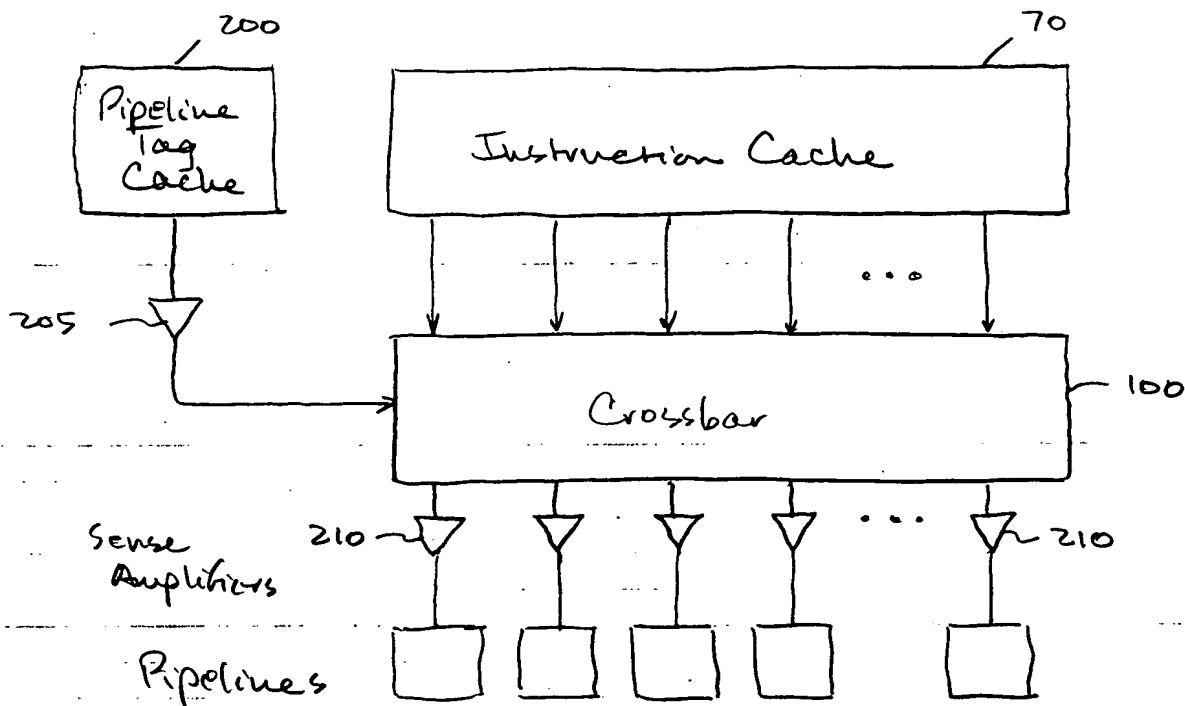 200
70
Pipeline
Tag
Cache
Instruction Cache
...
205
100
Crossbar
Sense
Amplifiers
210
...
210
Pipelines